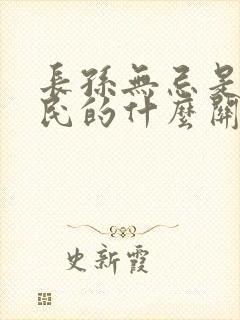 長孫無忌是
民的什麼關
史新霞